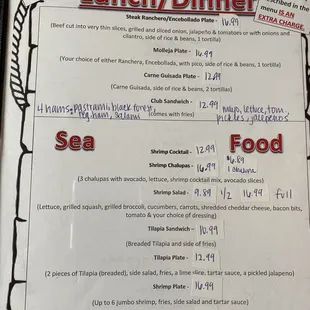 Lunch/Dinner
scribed in the
menu IS AN
EXTRA CHARGE.
Steak Ranchero/Encebollado Plate - 16.99
(Beef cut into very thin slices, grilled and sliced onion, jalapeño & tomatoes or with onions and
cilantro, side of rice & beans, 1 tortilla)
Molleja Plate - 16.99
(Your choice of either Ranchera, Encebollada, with piro, side of rice & beans, 1 tortilla)
Carne Guisada Plate - 12.99
(Carne Guisada, side of rice & beans, 2 tortillas)
Club Sandwich - 12.99 mayo, lettuce, tom,
4 hams: pastrami, black forest, (comes with fries) pickles, jalapenos
reg. ham, salami
Sea Food
Shrimp Cocktail - 12.99 $6.89
Shrimp Chalupas - 16.99 1 chalupa
(3 chalupas with avocado, lettuce, shrimp cocktail mix, avocado slices)
Shrimp Salad - 9.89 1/2 16.99 full
(Lettuce, grilled squash, grilled broccoli, cucumbers, carrots, shredded cheddar cheese, bacon bits,
tomato & your choice of dressing)
Tilapia Sandwich - 10.99
(Breaded Tilapia and side of fries)
Tilapia Plate - 12.99
(2 pieces of Tilapia (breaded), side salad, fries, a lime slice, tartar sauce, a pickled jalapeno)
Shrimp Plate - 16.99
(Up to 6 jumbo shrimp, fries, side salad and tartar sauce)